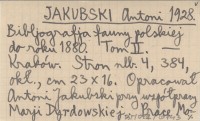 JAKUBSKI Antoni 1928.
Bibljografja fauny polskiej
do roku 1880. Tom II. —
Kraków. Stron nlb. 4, 384,
okł., cm 23 x 16. Opracował
Antoni Jakubski przy współpracy
Marji Dyrdowskiej. Prace Mo-